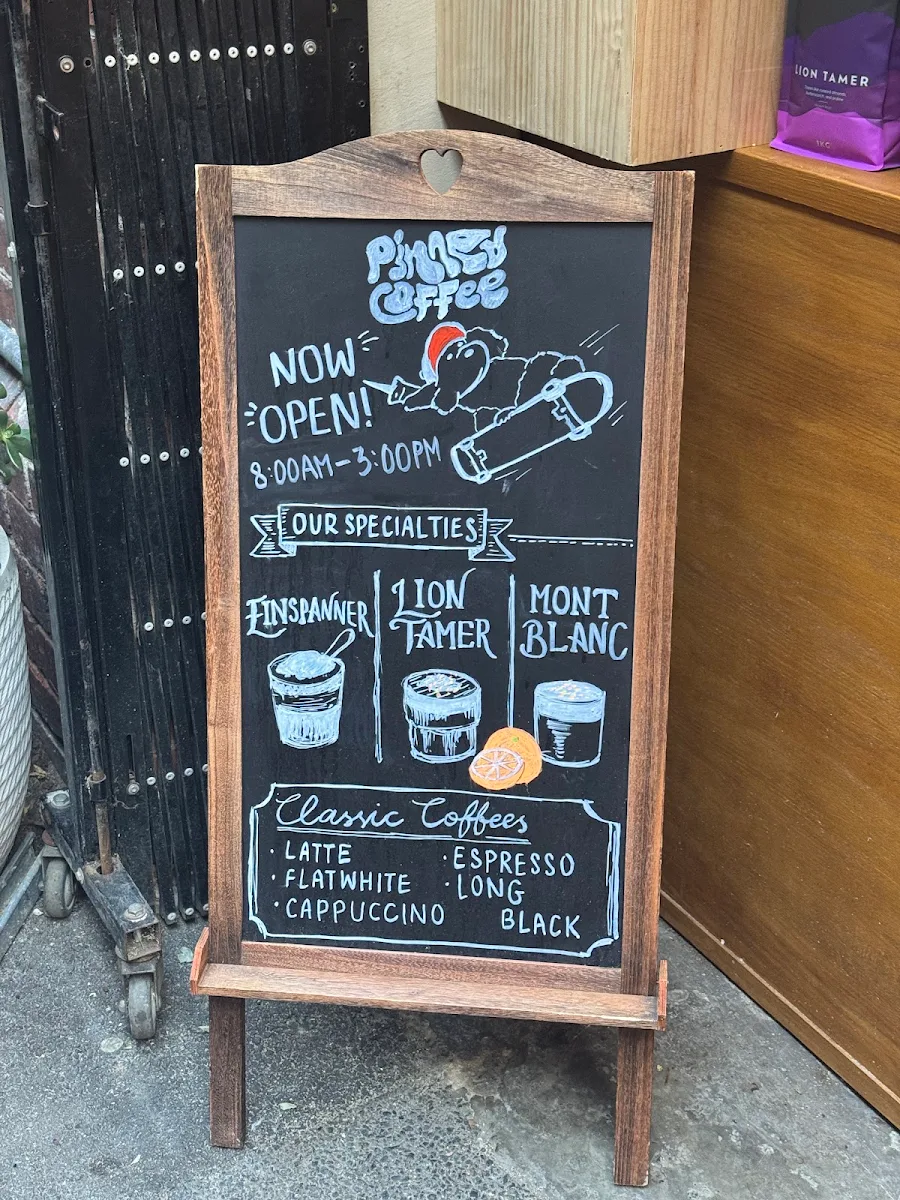 LION TAMER
1KG
Pinned
Coffee
NOW
OPEN!
8:00AM-3:00PM
OUR SPECIALTIES
EINSPANNER
LION
TAMER
MONT
BLANC
Classic Coffees
· LATTE
· FLATWHITE
· CAPPUCCINO
· ESPRESSO
· LONG
BLACK